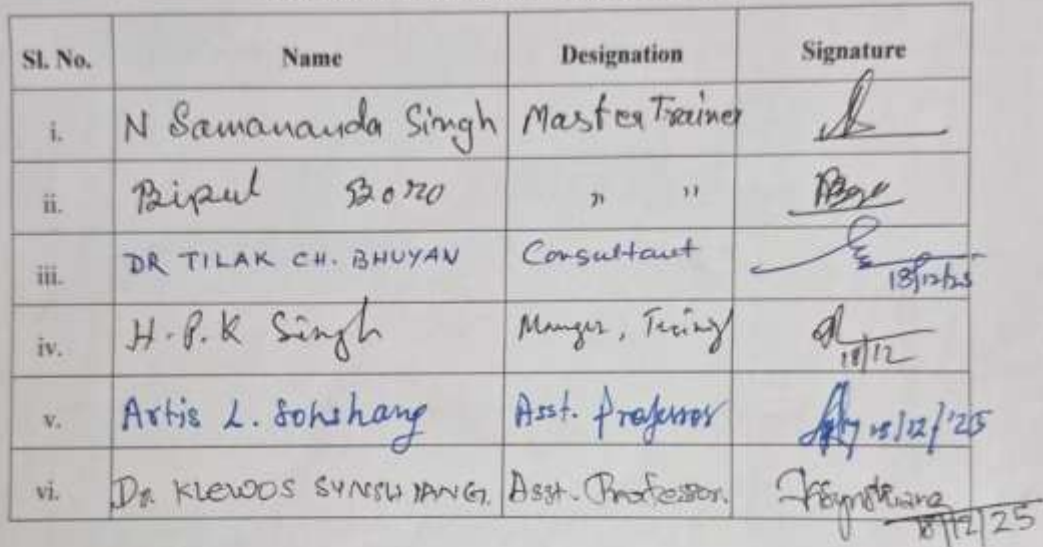 Sl. No. Name Designation Signature
i. N Samananda Singh Master Trainer
ii. Bipul Boro " "
iii. DR TILAK CH. BHUYAN Consultant 18/12/25
iv. H.P.K Singh 18/12
v. Artis L. Sohshang Asst. Professor 18/12/'25
vi. Dr. KLEWOS SYNSHIANG. Asst. Professor. 18/12/25